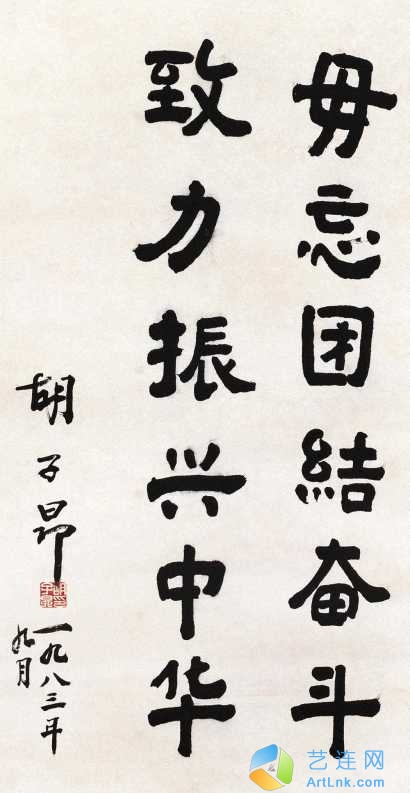 毋忘团结奋斗
致力振兴中华
胡子昂
一九八三年
九月
艺连网
ArtLnk.com